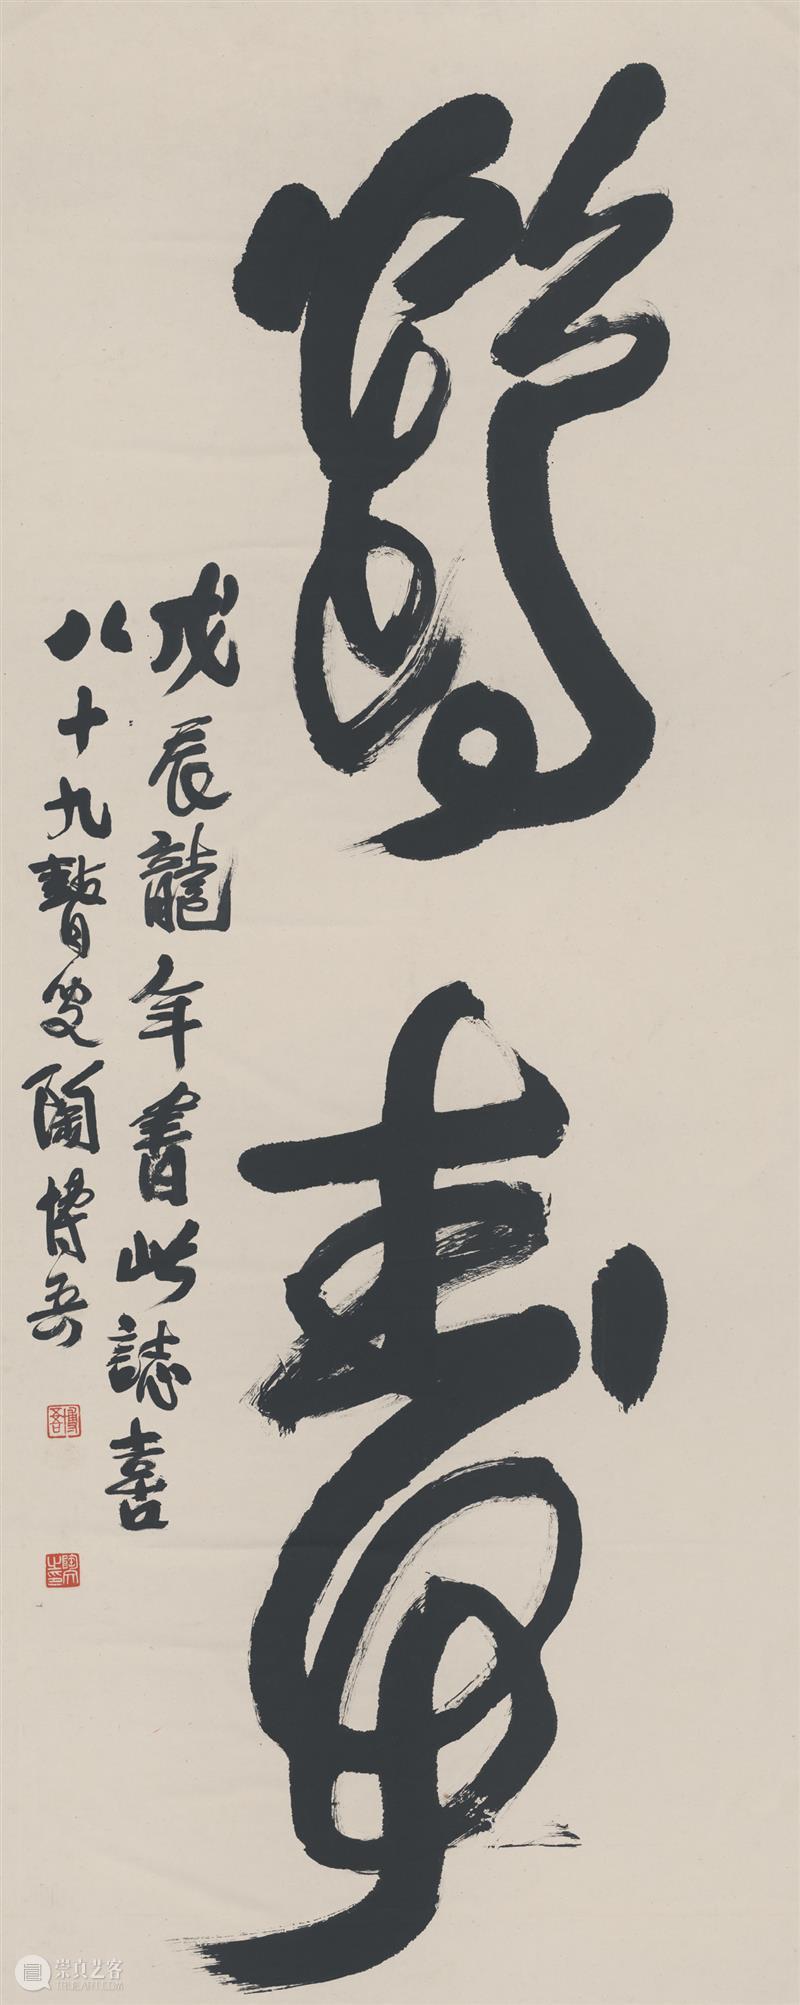 鶴壽
戊辰龍年書此誌喜
八十九瞽叟陶博吾
博吾
崇真艺客